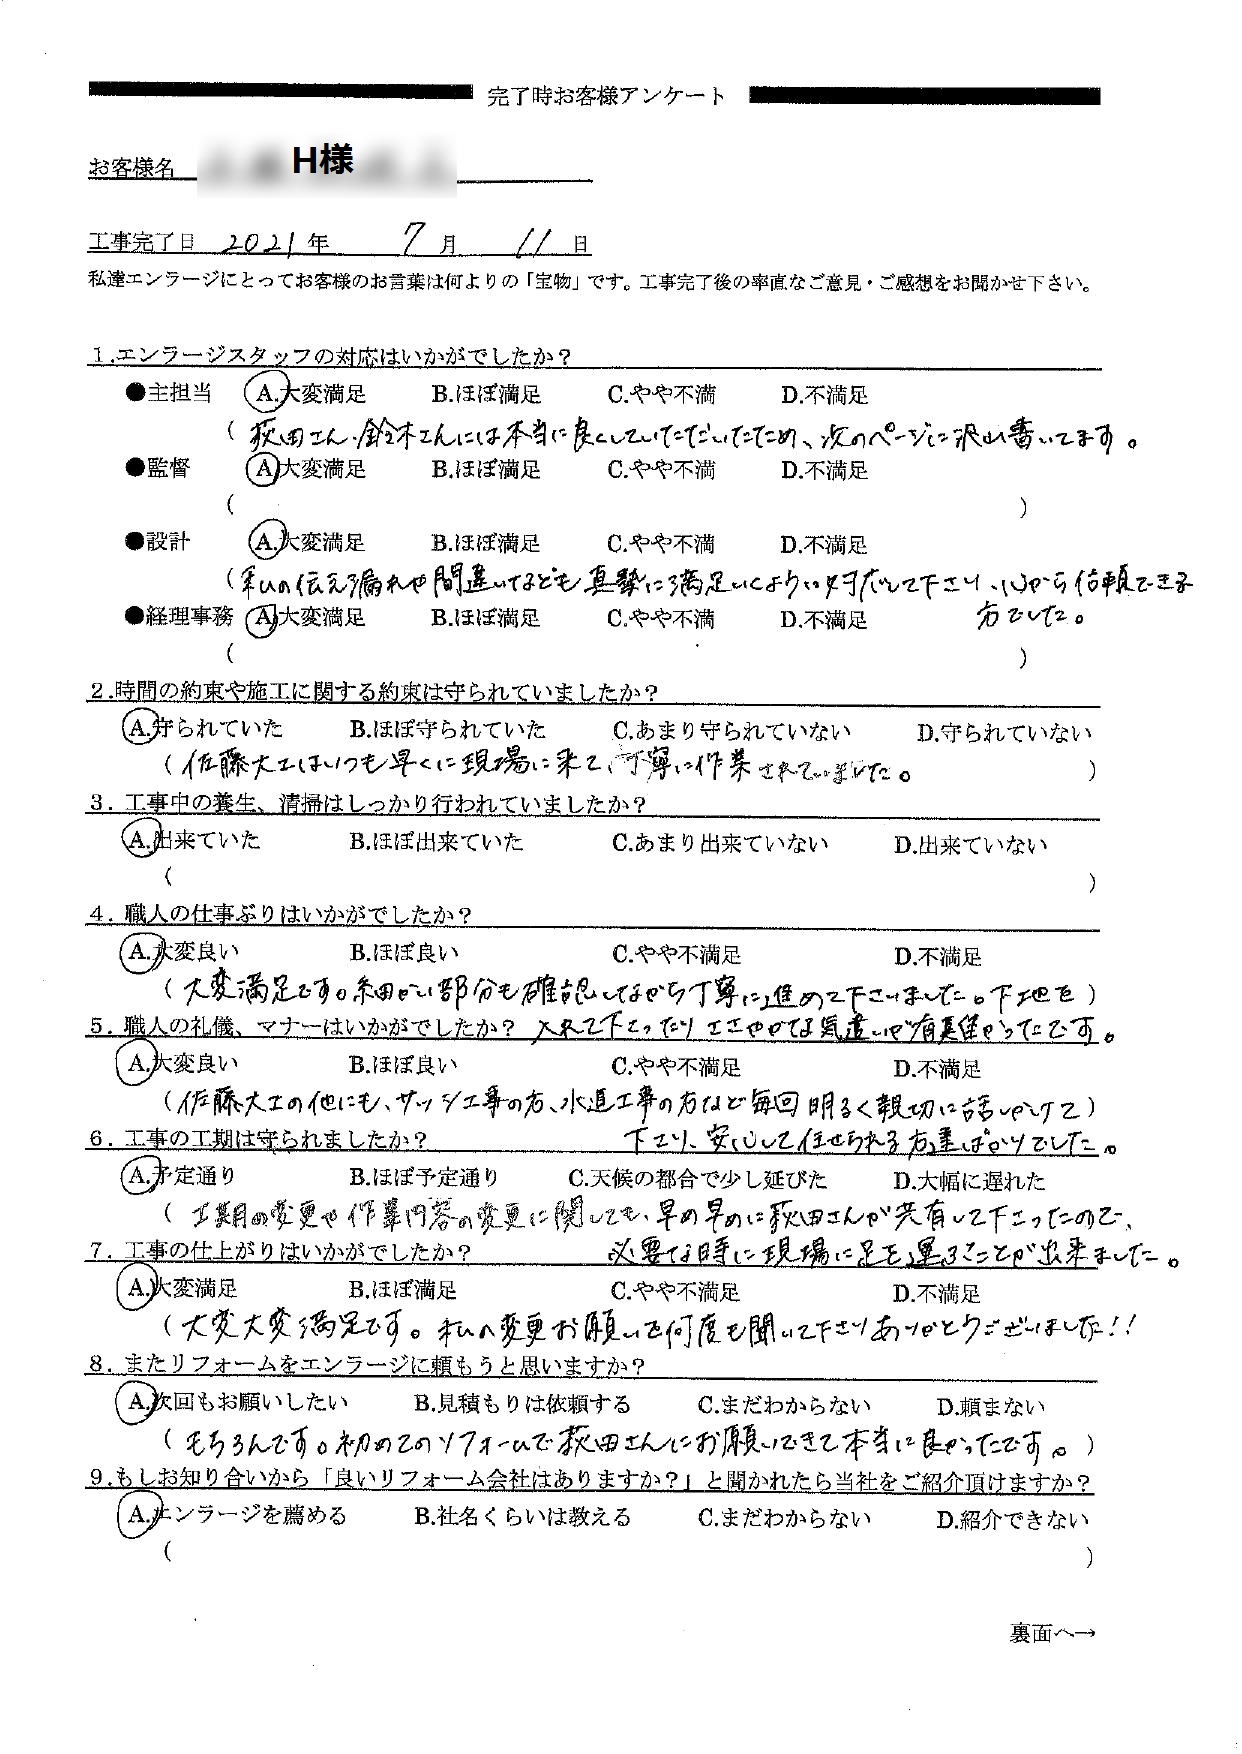 完了時お客様アンケート
お客様名 H様
工事完了日 2021年 7月 11日
私達エンラージにとってお客様のお言葉は何よりの「宝物」です。工事完了後の率直なご意見・ご感想をお聞かせ下さい。
1.エンラージスタッフの対応はいかがでしたか？
●主担当 A.大変満足 B.ほぼ満足 C.やや不満 D.不満足
（荻田さん・鈴木さんには本当に良くしていただいたため、次のページに沢山書いてます。
●監督 A.大変満足 B.ほぼ満足 C.やや不満 D.不満足
（ ）
●設計 A.大変満足 B.ほぼ満足 C.やや不満 D.不満足
（私の伝え漏れや間違いなども真摯に満足いくように対応して下さり、心から信頼できる
●経理事務 A.大変満足 B.ほぼ満足 C.やや不満 D.不満足 方でした。
（ ）
2.時間の約束や施工に関する約束は守られていましたか？
A.守られていた B.ほぼ守られていた C.あまり守られていない D.守られていない
（佐藤大工はいつも早くに現場に来て、丁寧に作業されていました。）
3. 工事中の養生、清掃はしっかり行われていましたか？
A.出来ていた B.ほぼ出来ていた C.あまり出来ていない D.出来ていない
（ ）
4. 職人の仕事ぶりはいかがでしたか？
A.大変良い B.ほぼ良い C.やや不満足 D.不満足
（大変満足です。細かい部分も確認しながら丁寧に進めて下さいました。下地を）
5. 職人の礼儀、マナーはいかがでしたか？ 入れて下さったりとささやかな気遣いが有難かったです。
A.大変良い B.ほぼ良い C.やや不満足 D.不満足
（佐藤大工の他にも、サッシ工事の方、水道工事の方など毎回明るく親切に話しかけて）
6. 工事の工期は守られましたか？ 下さり、安心して任せられる方達ばかりでした。
A.予定通り B.ほぼ予定通り C.天候の都合で少し延びた D.大幅に遅れた
（工期の変更や作業内容の変更に関しても、早め早めに荻田さんが共有して下さったので、
7. 工事の仕上がりはいかがでしたか？ 必要な時に現場に足を運ぶことが出来ました。
A.大変満足 B.ほぼ満足 C.やや不満足 D.不満足
（大変大変満足です。私の変更お願いを何度も聞いて下さりありがとうございました!!
8. またリフォームをエンラージに頼もうと思いますか？
A.次回もお願いしたい B.見積もりは依頼する C.まだわからない D.頼まない
（もちろんです。初めてのリフォームで荻田さんにお願いできて本当に良かったです。）
9.もしお知り合いから「良いリフォーム会社はありますか？」と聞かれたら当社をご紹介頂けますか？
A.エンラージを薦める B.社名くらいは教える C.まだわからない D.紹介できない
（ ）
裏面へ→